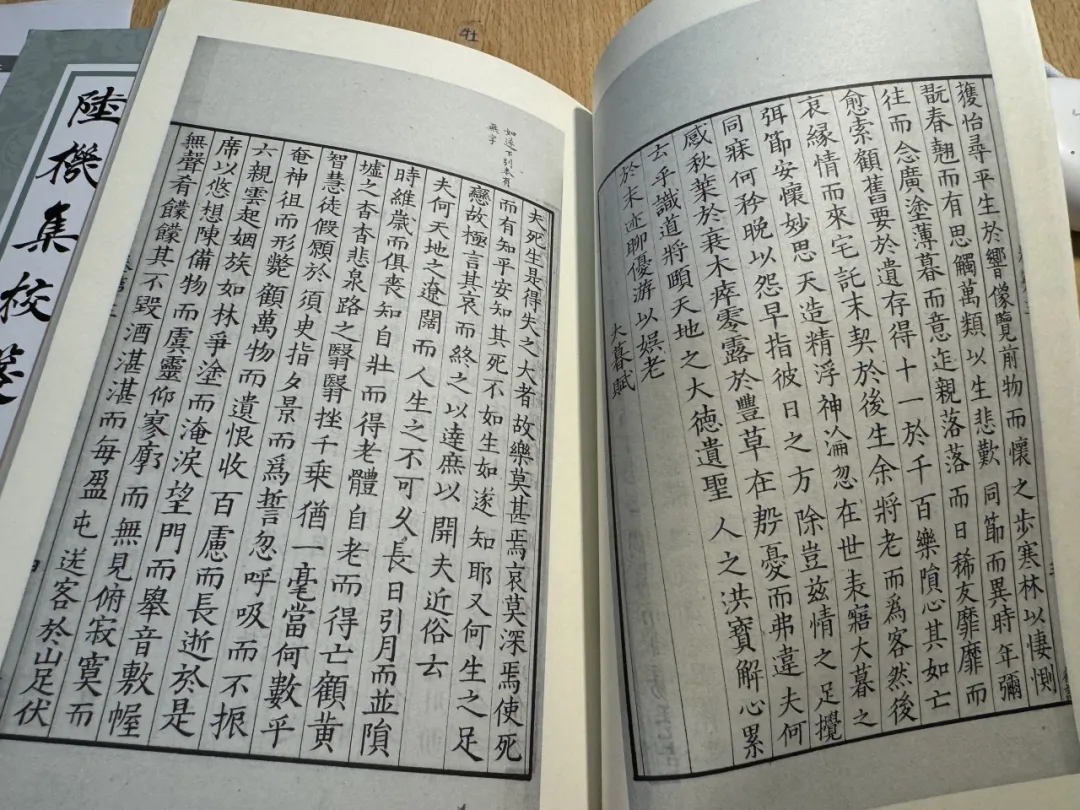 陸機集校箋
獲怡尋平生於響像覽前物而懷之步寒林以悽惻
翫春翹而有思觸萬類以生悲歎同節而異時年彌
往而念廣塗薄暮而意迮親落落而日稀友靡靡而
愈索顧舊要於遺存得十一於千百樂隤心其如亡
哀緣情而來宅託末契於後生余將老而為客然後
弭節安懷妙思天造精浮神淪忽在世表寤大暮之
同寐何矜晚以怨早指彼日之方除豈茲情之足攪
感秋葉於衰木瘁零露於豐草在殷憂而弗違夫何
云乎識道將頤天地之大德遺聖人之洪寶解心累
於末迹聊優游以娛老
大暮賦
如遂下引本有
無字
夫死生是得失之大者故樂莫甚焉哀莫深焉使死
而有知乎安知其死不如生如遂知耶又何生之足
戀故極言其哀而終之以達庶以開夫近俗云
夫何天地之遼闊而人生之不可久長日引月而並隕
時維歲而俱喪知自壯而得老體自老而得亡顧黃
墟之杳杳悲泉路之翳翳挫千乘猶一毫當何數乎
智慧徒假願於須臾指夕景而爲誓忽呼吸而不振
奄神徂而形斃顧萬物而遺恨收百慮而長逝於是
六親雲起姻族如林爭塗而淹淚望門而舉音敷幄
席以悠想陳備物而虞靈仰寥廓而無見俯寂寞而
無聲肴饛饛其不毀酒湛湛而每盈屯送客於山足伏